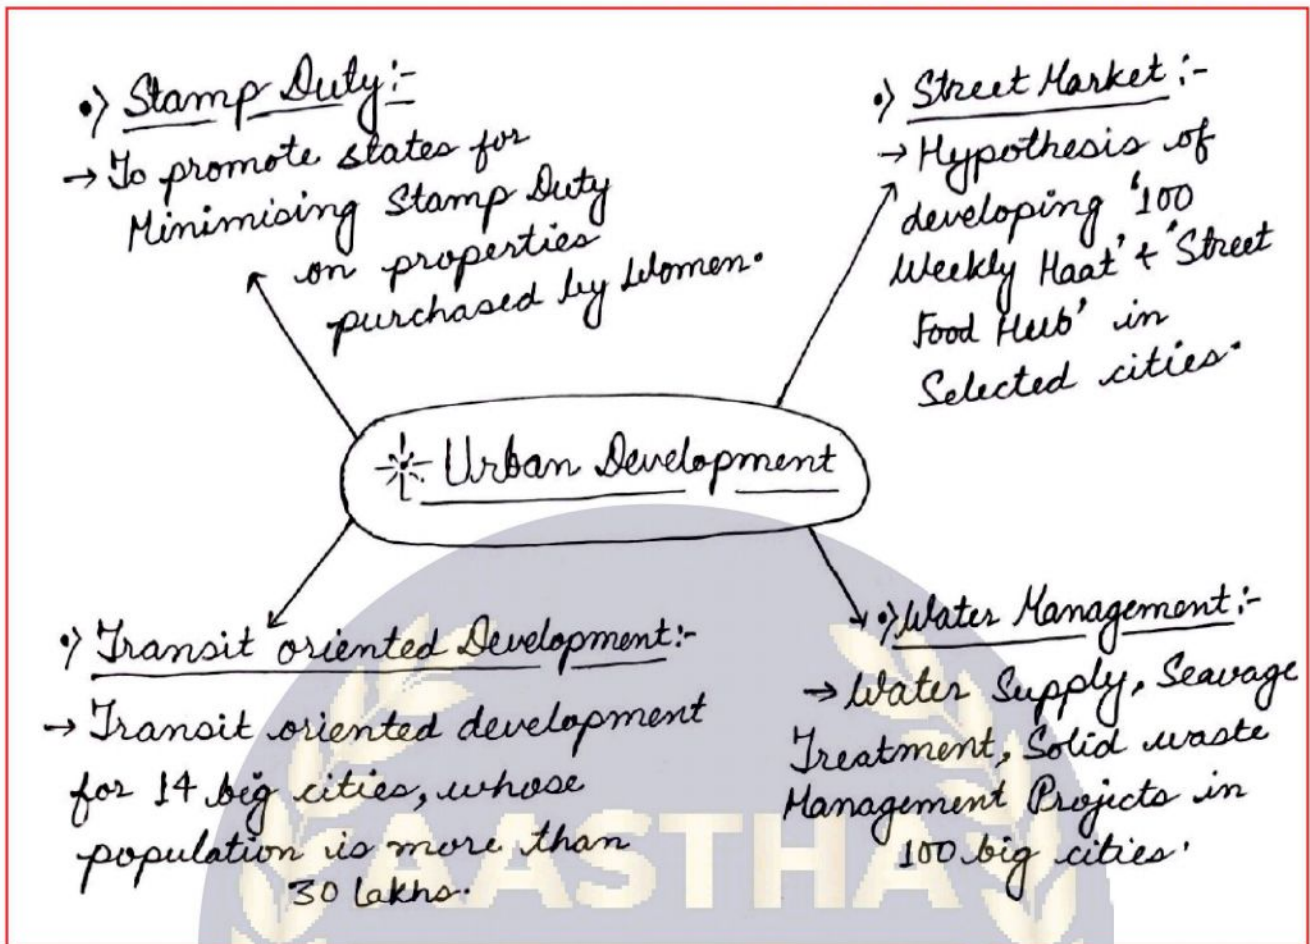 •) Stamp Duty:-
→ To promote states for
Minimising Stamp Duty
on properties
purchased by Women.
•) Street Market:-
→ Hypothesis of
developing '100
Weekly Haat' & 'Street
Food Hub' in
Selected cities.
Urban Development
•) Transit oriented Development:-
→ Transit oriented development
for 14 big cities, whose
population is more than
30 lakhs.
•) Water Management:-
→ Water Supply, Seavage
Treatment, Solid waste
Management Projects in
100 big cities.
AASTHA